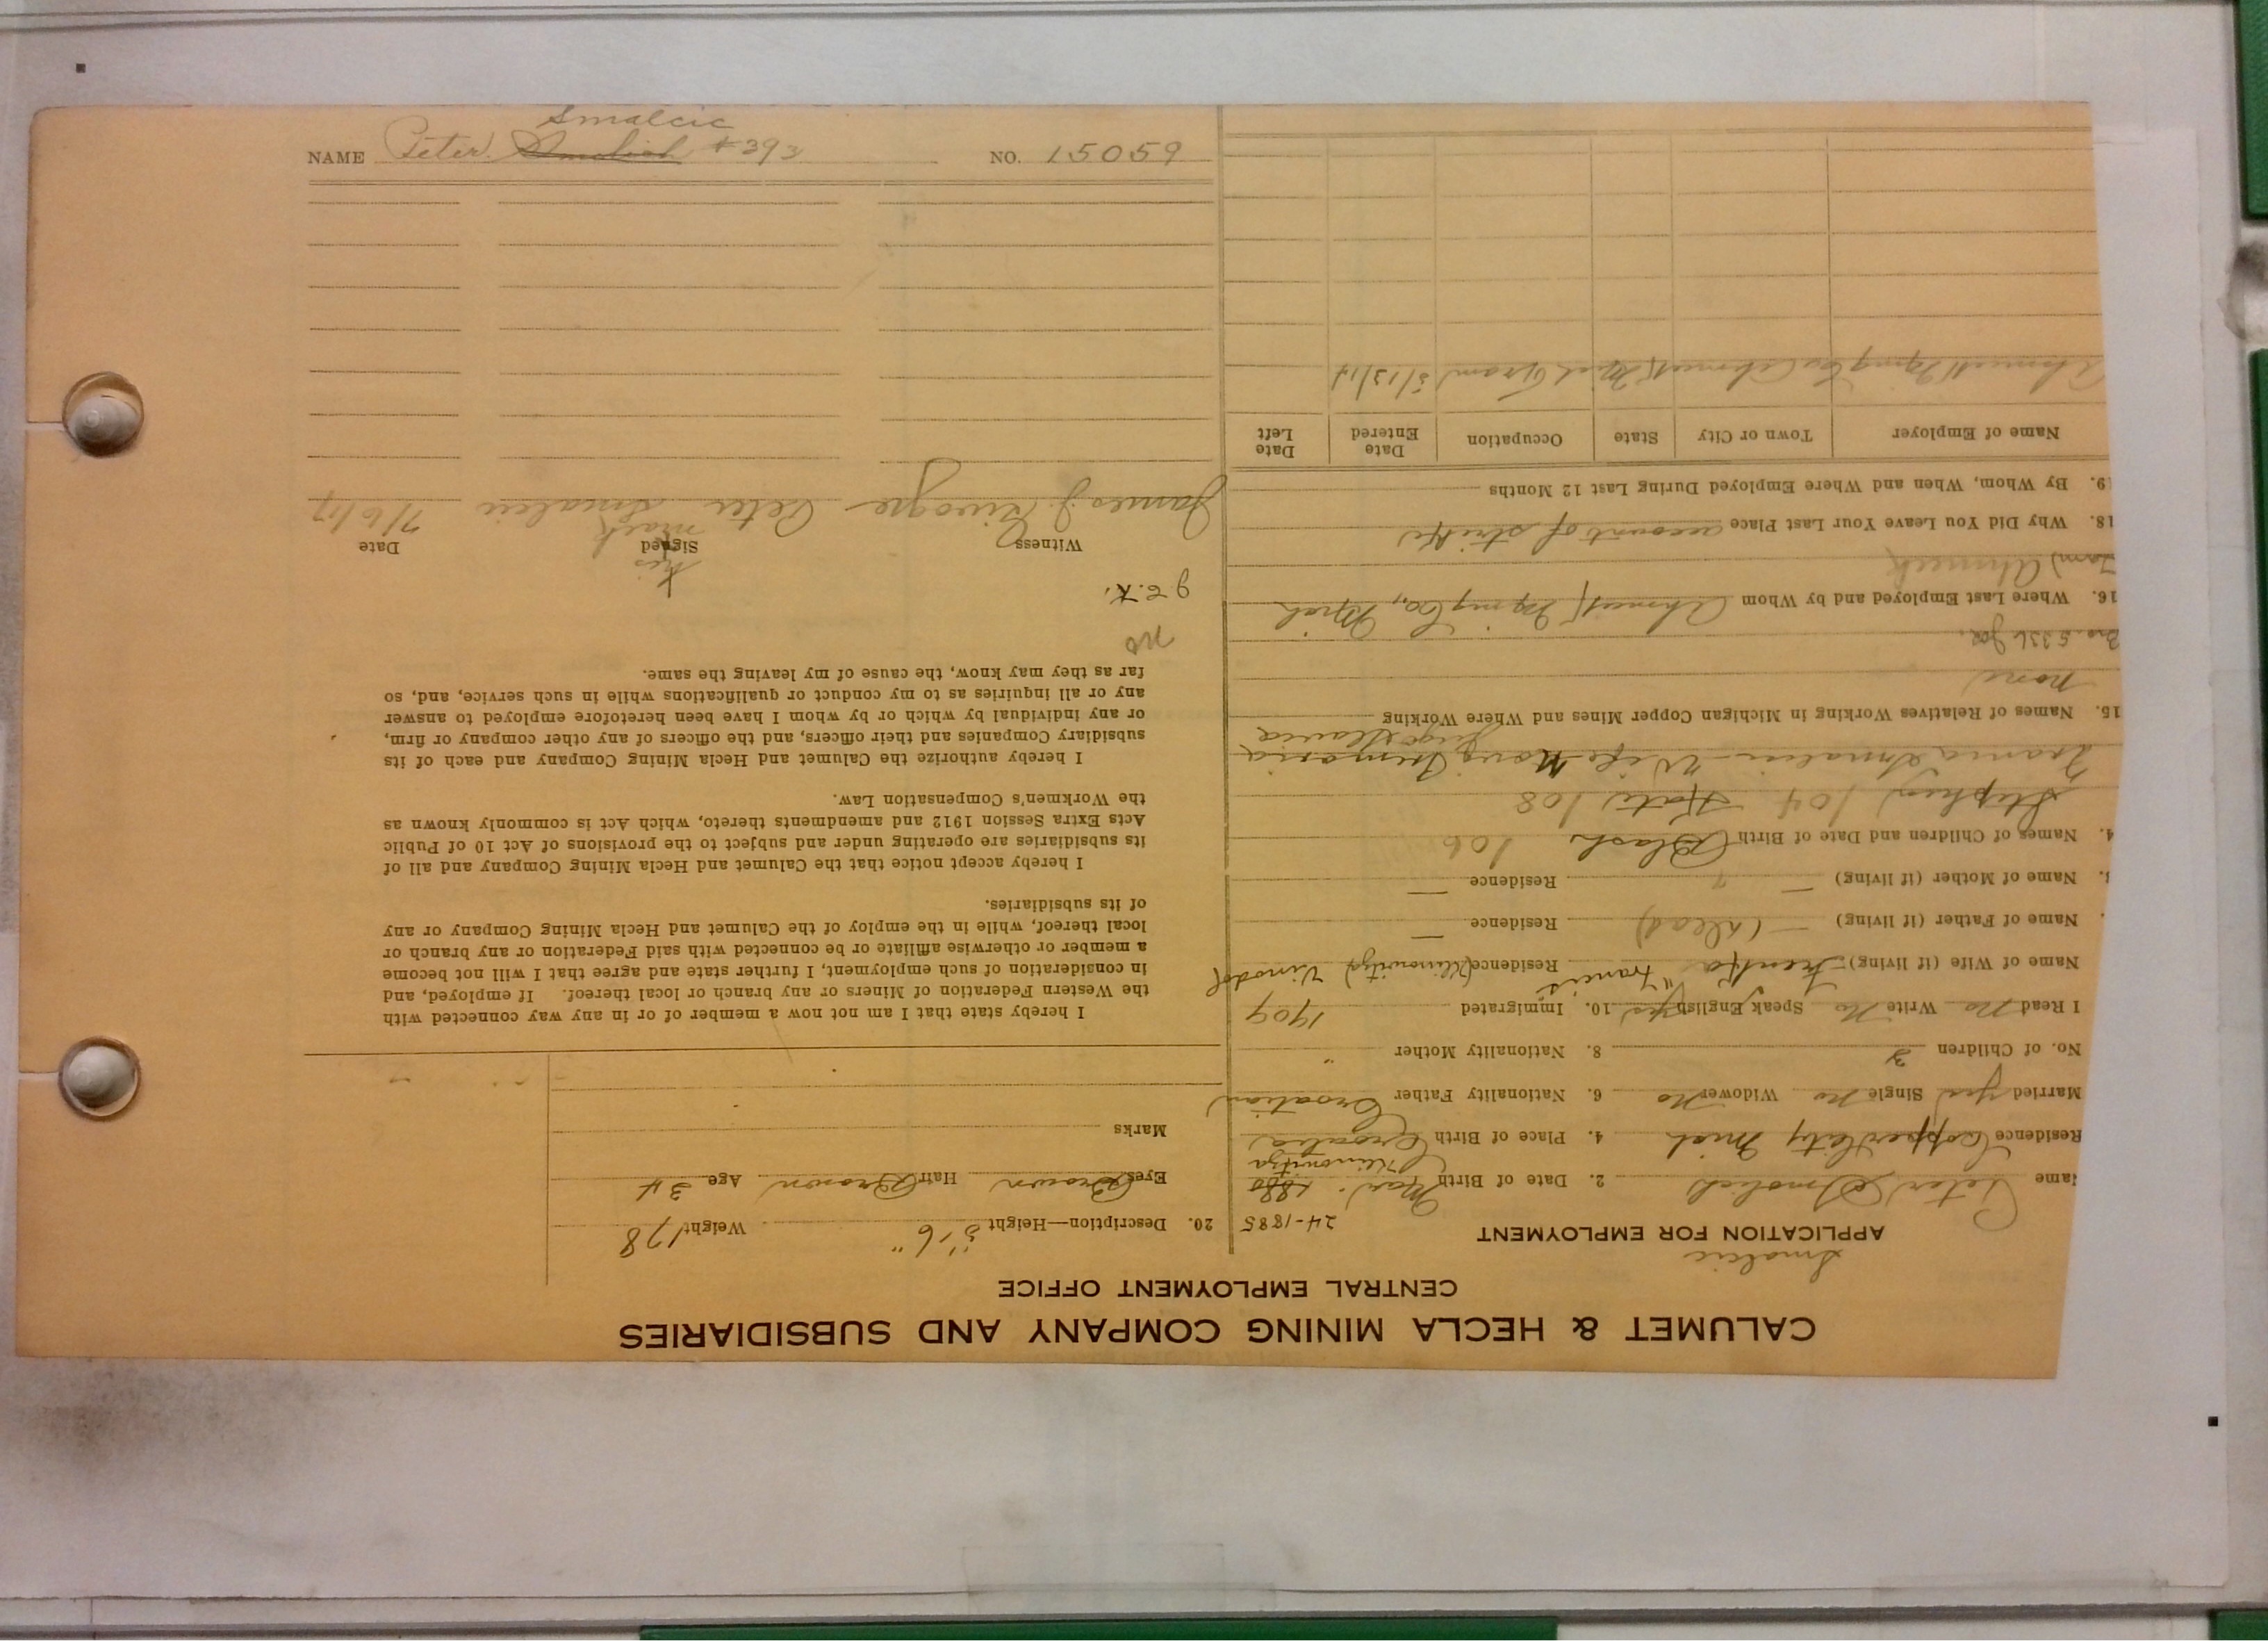 NAME Peter Smolich #393 NO. 15059
Smalcic
CALUMET & HECLA MINING COMPANY AND SUBSIDIARIES
CENTRAL EMPLOYMENT OFFICE
Smalcic
APPLICATION FOR EMPLOYMENT
24-1885
ame Peter Smolich 2. Date of Birth Mar. 1880
Residence Copper City Mich 4. Place of Birth Croatia
Married Yes Single No Widower No 6. Nationality Father Croatian
No. of Children 3 8. Nationality Mother "
I Read No Write No Speak English Yes 10. Immigrated 1909
"Francis"
Name of Wife (if living) Residence Vinodol
Name of Father (if living) — (dead) Residence —
Name of Mother (if living) — " Residence —
4. Names of Children and Date of Birth Blash 106
Stephen 104 Kate 108
Smalcic - Wife
Jugo Slavia
15. Names of Relatives Working in Michigan Copper Mines and Where Working
none
Bro. 5336 Joe.
16. Where Last Employed and by Whom Ahmeek Mining Co., Mich
Tam Ahmeek
18. Why Did You Leave Your Last Place account of strike
19. By Whom, When and Where Employed During Last 12 Months
Name of Employer Town or City State Occupation Date Entered Date Left
Ahmeek Mining Co Ahmeek Mich Tram
20. Description—Height 5'6" Weight 178
Eyes Brown Hair Brown Age 34
Marks
I hereby state that I am not now a member of or in any way connected with
the Western Federation of Miners or any branch or local thereof. If employed, and
in consideration of such employment, I further state and agree that I will not become
a member or otherwise affiliate or be connected with said Federation or any branch or
local thereof, while in the employ of the Calumet and Hecla Mining Company or any
of its subsidiaries.
I hereby accept notice that the Calumet and Hecla Mining Company and all of
its subsidiaries are operating under and subject to the provisions of Act 10 of Public
Acts Extra Session 1912 and amendments thereto, which Act is commonly known as
the Workmen's Compensation Law.
I hereby authorize the Calumet and Hecla Mining Company and each of its
subsidiary Companies and their officers, and the officers of any other company or firm,
or any individual by which or by whom I have been heretofore employed to answer
any or all inquiries as to my conduct or qualifications while in such service, and, so
far as they may know, the cause of my leaving the same.
his
x
Witness Signed Date
mark
James J. Peter Smalcic 7/6/17